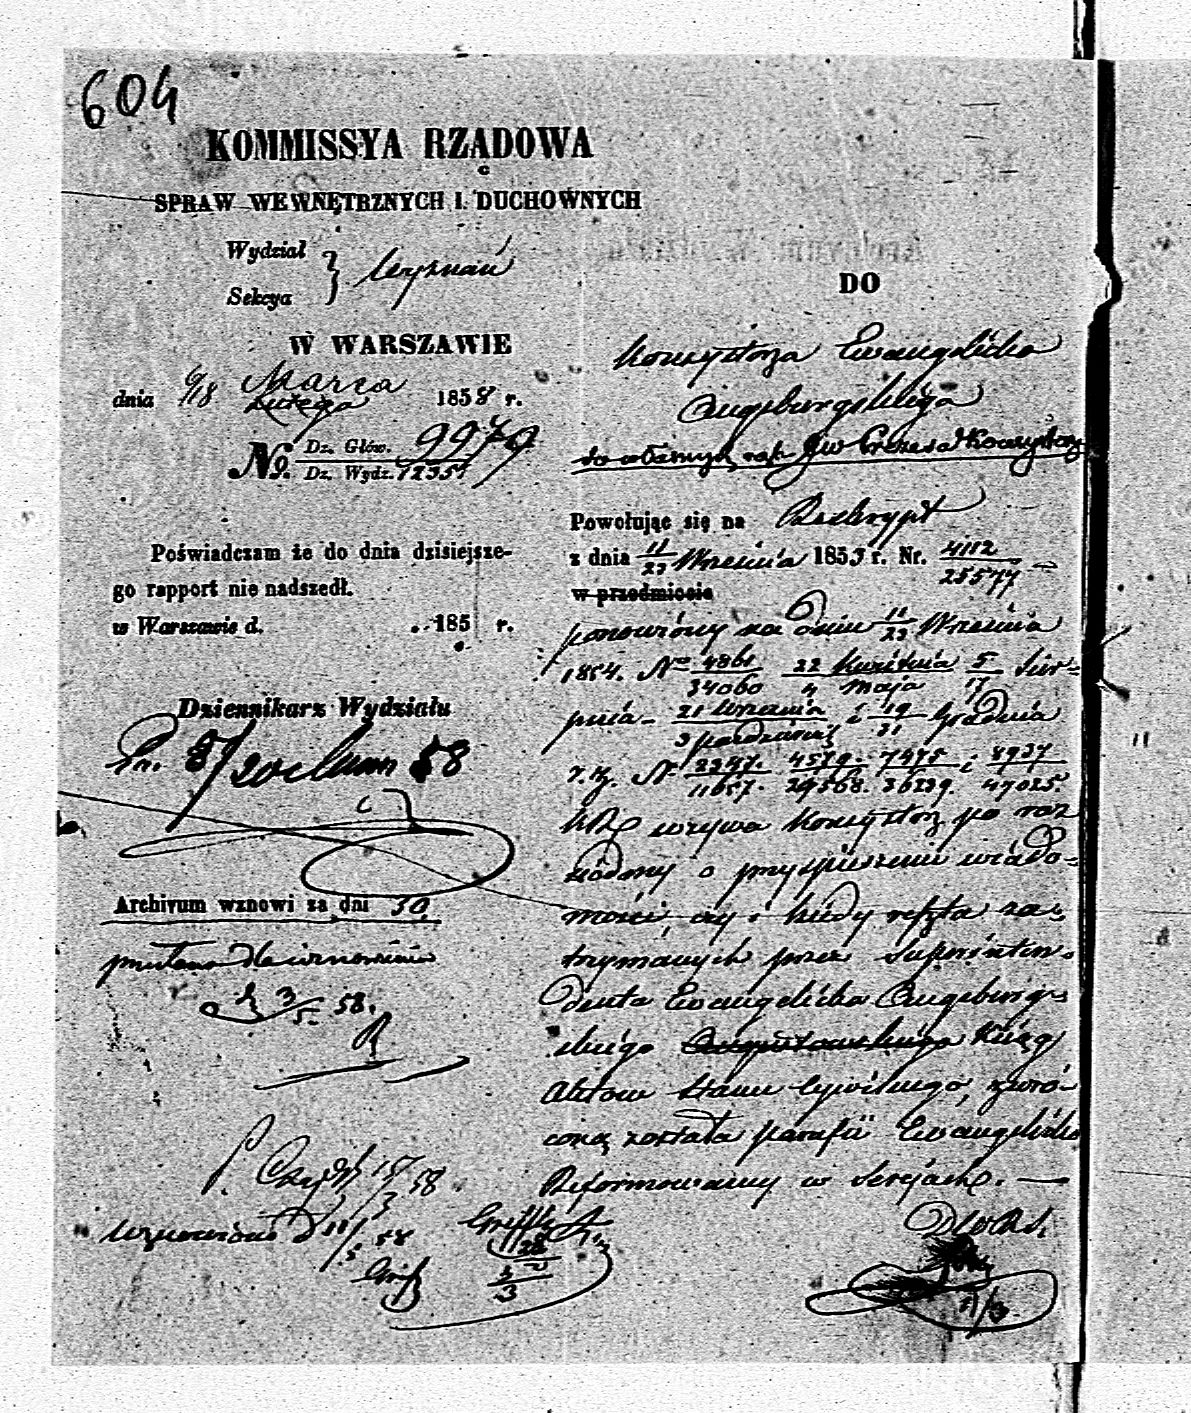 604
KOMMISSYA RZĄDOWA
SPRAW WEWNĘTRZNYCH I DUCHOWNYCH
Wydział
Sekcya
Wyznań
W WARSZAWIE
dnia 6/18 Marca 1858 r.
Lutego
No. Dz. Głów. 9979
Dz. Wydz. 12351
Poświadczam że do dnia dzisiejsze-
go rapport nie nadszedł.
w Warszawie d. 185 r.
Dziennikarz Wydziału
58
Archivum wznowi za dni 30.
3/5 58.
58
Wznowiono d 11/5 58
DO
Konsystorza Ewangelicko
Augsburgskiego
do własnych rąk JW Prezesa Konsystorza
Powołując się na Reskrypt
z dnia 11/23 Września 1853 r. Nr. 4112/25577
w przedmiocie
ponowiony na dniu 11/23 Września
1854. No 4861/34060 22 Kwietnia/4 Maja 5/17 Sier-
pnia - 21 Września/3 Października i 19/31 Grudnia
r. z. No 2247/11657. 4579/29568. 7475/36239. i 8937/47025.
KR wzywa Konsystorz po raz
siódmy o przyspieszenie wiado-
mości, czy i kiedy reszta za-
trzymanych przez Superinten-
denta Ewangelicko Augsburg-
skiego Augustowskiego Ksiąg
Aktów Stanu Cywilnego, zwró-
coną została parafii Ewangelicko
Reformowanej w Serejach. —